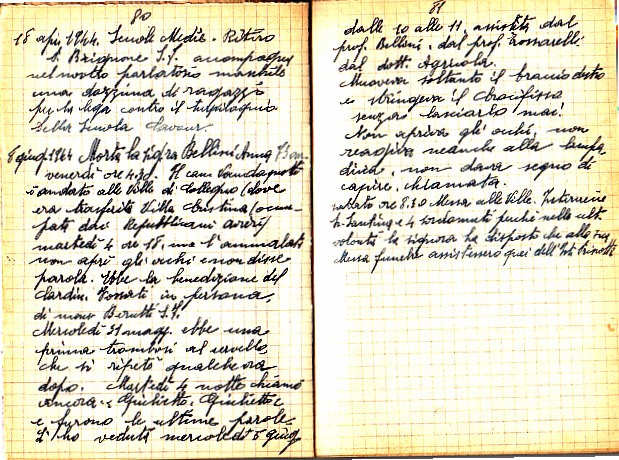 80
18 apr. 1944. Scuole Medie. Ritiro
P. Brignone S.J. accompagna
nel nostro parlatorio maschile
una dozzina di ragazzi
per la lega contro il turpiloquio
della Scuola Cavour.
8 giug. 1944 Morta la sig.ra Bellini Anna
venerdì ore 4.30. Il
è andato alle Ville di Collegno (dove
era trasferita Villa Cristina (occu-
pata dai Repubblicani
martedì 4 ore 18, ma l'ammalata
non aprì gli occhi e non disse
parola. Ebbe la benedizione del
Cardin. Fossati in persona,
di mons Barutti S.J.
Mercoledì 31 magg. ebbe una
prima trombosi al cervello,
che si ripetè qualche ora
dopo. Martedì 4 notte chiamò
ancora: Giulietto, Giulietto
e furono le ultime parole.
L'ho veduta mercoledì 5 giug
81
dalle 10 alle 11, assistita dal
prof. Bellini, dal prof.
dal dott. Agruola.
Muoveva soltanto il braccio destro
e stringeva il Crocifisso
senza lasciarlo mai.
Non apriva gli occhi, non
reagiva neanche alla lampa-
dina, non dava segno di
capire, chiamata.
sabato ore 8.30 Messa alle Ville. Intervenne
e 4 sordomuti perchè nelle ult.
volontà la signora ha disposto che alla sua
Messa funebre assistessero quei dell'Ist. Prinotti